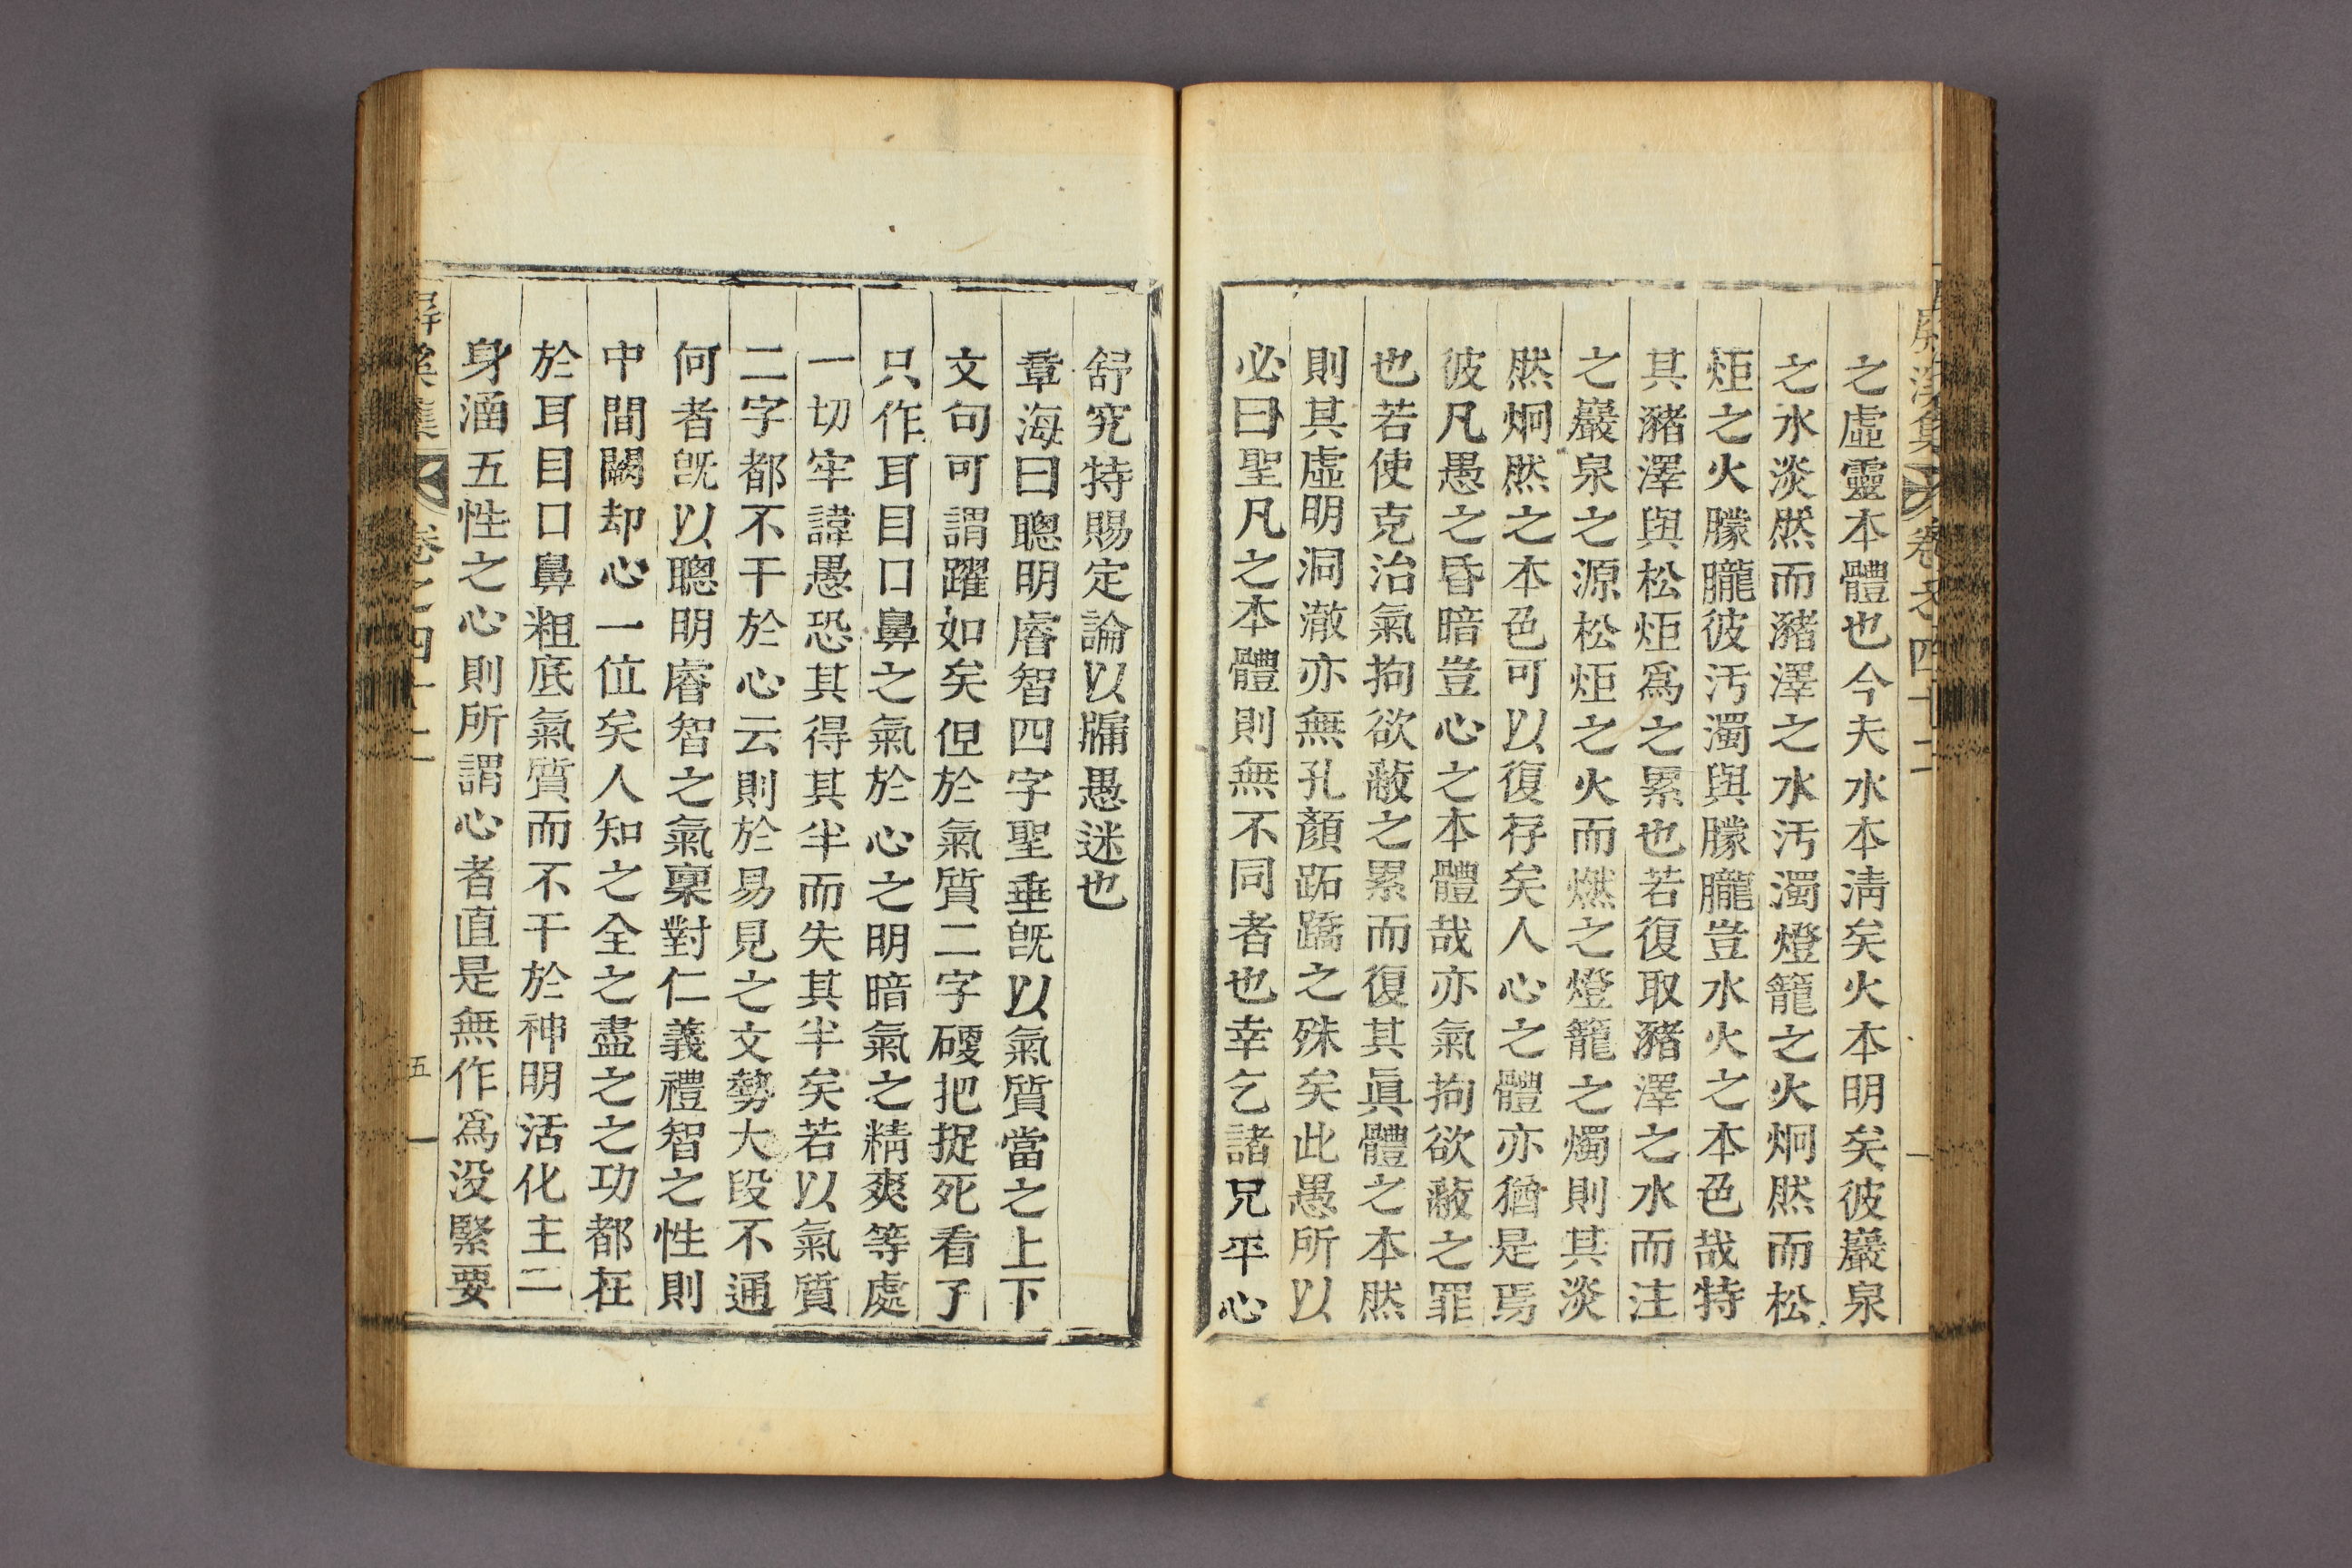 屏溪集 卷之四十二
之虛靈本體也今夫水本淸矣火本明矣彼巖泉
之水淡然而瀦澤之水汚濁燈籠之火炯然而松
炬之火朦朧彼汚濁與朦朧豈水火之本色哉特
其瀦澤與松炬爲之累也若復取瀦澤之水而注
之巖泉之源松炬之火而燃之燈籠之燭則其淡
然炯然之本色可以復存矣人心之體亦猶是焉
彼凡愚之昏暗豈心之本體哉亦氣拘欲蔽之罪
也若使克治氣拘欲蔽之累而復其眞體之本然
則其虛明洞澈亦無孔顏跖蹻之殊矣此愚所以
必曰聖凡之本體則無不同者也幸乞諸兄平心
舒究特賜定論以牖愚迷也
章海曰聰明睿智四字聖垂旣以氣質當之上下
文句可謂躍如矣但於氣質二字硬把捉死看了
只作耳目口鼻之氣於心之明暗氣之精爽等處
一切牢諱愚恐其得其半而失其半矣若以氣質
二字都不干於心云則於易見之文勢大段不通
何者旣以聰明睿智之氣稟對仁義禮智之性則
中間闕却心一位矣人知之全之盡之之功都在
於耳目口鼻粗底氣質而不干於神明活化主二
身涵五性之心則所謂心者直是無作爲没緊要
屏溪集 卷之四十二 五